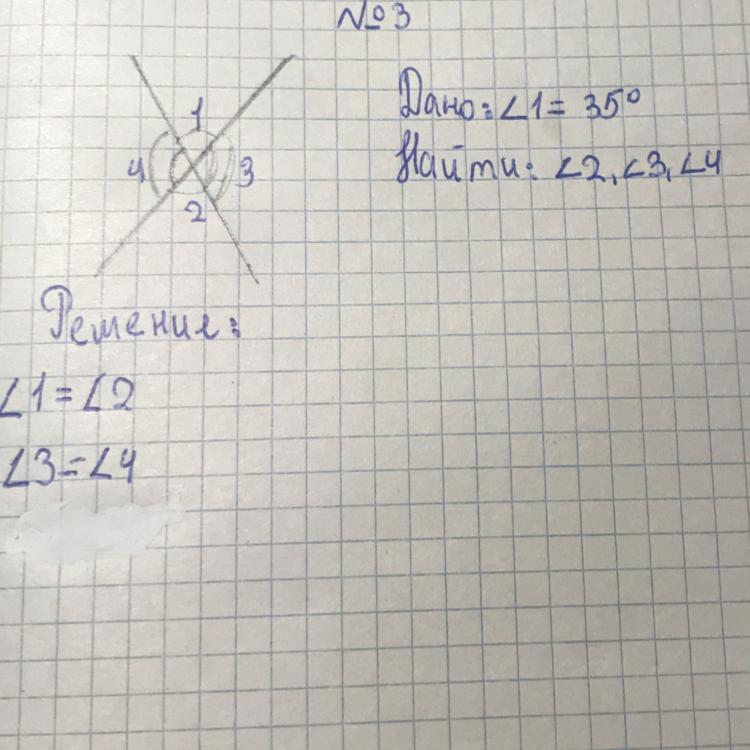 №3
1
4
3
2
Дано: ∠1 = 35°
Найти: ∠2, ∠3, ∠4
Решение:
∠1 = ∠2
∠3 = ∠4